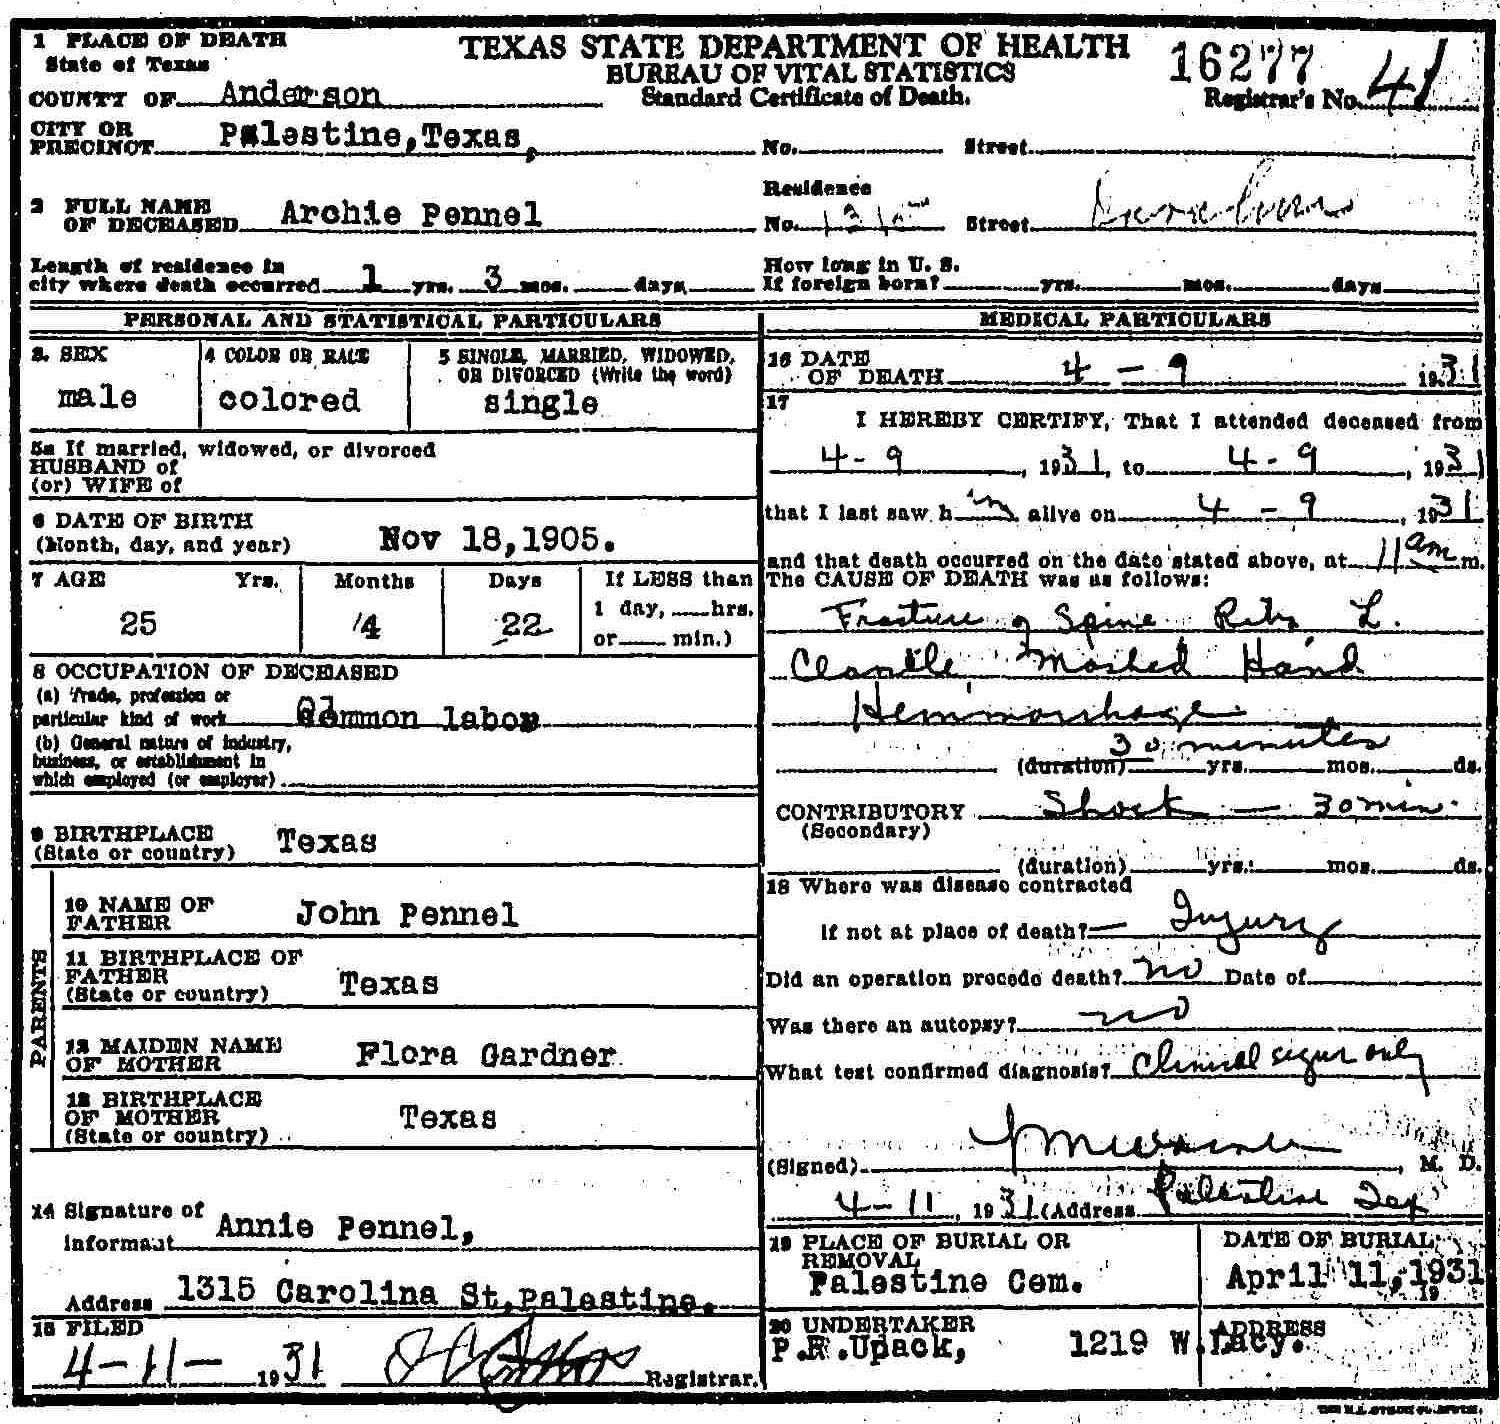 TEXAS STATE DEPARTMENT OF HEALTH
BUREAU OF VITAL STATISTICS
Standard Certificate of Death.
16277
Registrar's No. 41
1 PLACE OF DEATH
State of Texas
COUNTY OF Anderson
CITY OR PRECINCT Palestine, Texas,
No. Street
2 FULL NAME OF DECEASED Archie Pennel
Residence No. 1315 Street
Length of residence in city where death occurred 1 yrs. 3 mos. days
How long in U. S. If foreign born? yrs. mos. days
PERSONAL AND STATISTICAL PARTICULARS
3. SEX male
4 COLOR OR RACE colored
5 SINGLE, MARRIED, WIDOWED, OR DIVORCED (Write the word) single
5a If married, widowed, or divorced
HUSBAND of
(or) WIFE of
6 DATE OF BIRTH (Month, day, and year) Nov 18,1905.
7 AGE Yrs. Months Days If LESS than
25 4 22 1 day, hrs.
or min.)
8 OCCUPATION OF DECEASED
(a) Trade, profession or particular kind of work Common labor
(b) General nature of industry, business, or establishment in which employed (or employer)
9 BIRTHPLACE (State or country) Texas
PARENTS
10 NAME OF FATHER John Pennel
11 BIRTHPLACE OF FATHER (State or country) Texas
12 MAIDEN NAME OF MOTHER Flora Gardner
13 BIRTHPLACE OF MOTHER (State or country) Texas
14 Signature of Informant Annie Pennel,
Address 1315 Carolina St,Palestine.
15 FILED 4-11- 1931 Registrar.
MEDICAL PARTICULARS
16 DATE OF DEATH 4 - 9 1931
17 I HEREBY CERTIFY, That I attended deceased from
4-9, 1931, to 4-9, 1931
that I last saw him alive on 4-9, 1931
and that death occurred on the date stated above, at 11 am m.
The CAUSE OF DEATH was as follows:
Fracture of Spine Ribs L.
Clavicle Mashed Hand
Hemmorrhage
30 minutes
(duration) yrs. mos. ds.
CONTRIBUTORY (Secondary) Shock - 30 min.
(duration) yrs. mos. ds.
18 Where was disease contracted
if not at place of death? Injury
Did an operation precede death? no Date of
Was there an autopsy? no
What test confirmed diagnosis? Clinical signs only
(Signed) , M. D.
4-11, 1931 (Address Palestine Tex
19 PLACE OF BURIAL OR REMOVAL Palestine Cem.
DATE OF BURIAL April 11, 1931 19
20 UNDERTAKER P.R.Upack,
ADDRESS 1219 W.Lacy.